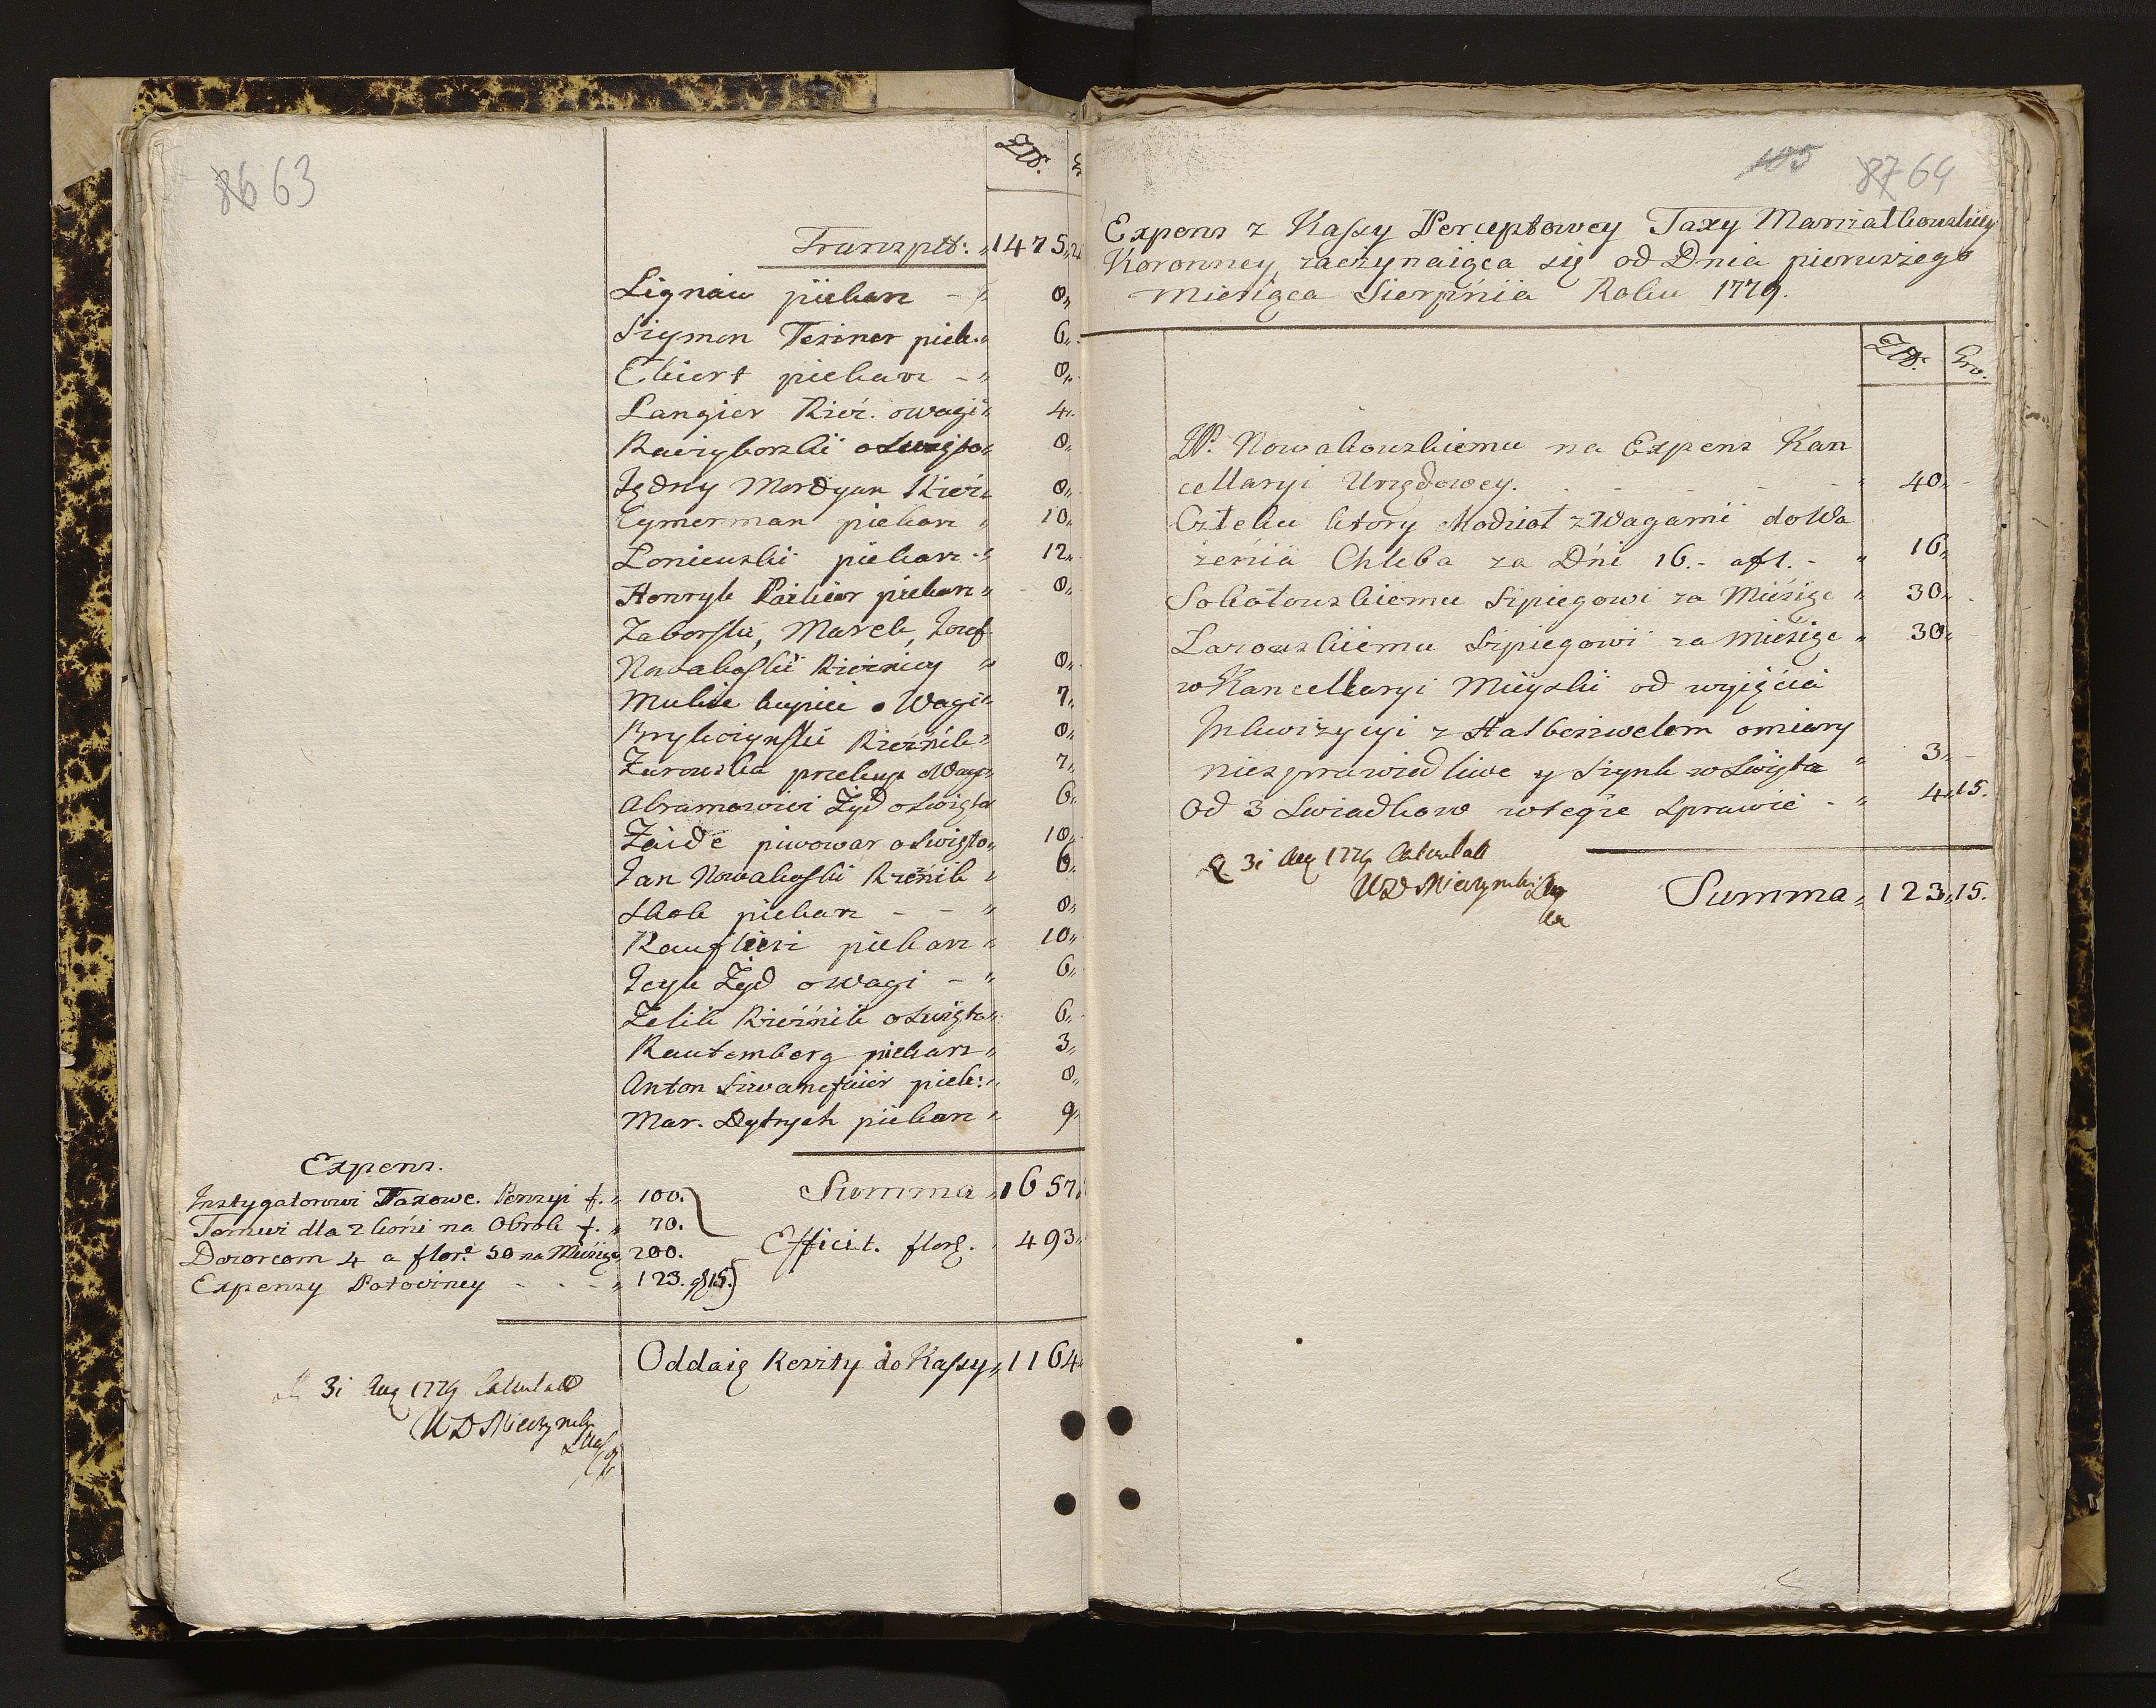 86 63
Złł.
Transpłt: „ 1475„
Lignau piekarz - „ 8„
Szymon Teszner piek. „ 6„
Ekiert piekarz - „ 8„
Langier Rzeź. o wagi „ 4„
Kaczyborski o Święto „ 8„
Jędrzy Mordyan Rzeź: „ 8„
Cymerman piekarz „ 10„
Loniewski piekarz - „ 12„
Henryk piekarz „ 8„
Zaborski, Marek, Jozef
Nowakoski Rzeźnicy „ 8„
kupiec o Wagi „ 7„
Rzeźnik „ 8„
Żurowska przekup. o Wagi „ 7„
Abramowicz Żyd o Święta „ 6„
Zaide piwowar o Święto „ 10„
Jan Nowakoski Rzeźnik „ 6„
Skok piekarz - - „ 8„
piekarz „ 10„
Icyk Żyd o wagi - „ 6„
Zelik Rzeźnik o Święto „ 6„
Rautemberg piekarz „ 3„
Anton piek: „ 8„
Mar. Dytrych piekarz „ 9„
Summa „ 1657„
Expens.
Instygatorowi Taxowe. Penzyi f. „ 100.
Temuż dla 2 koni na Obrok f. „ 70.
Dozorcom 4 a flor. 50 na Miesiąc „ 200.
Expensy Potoczney - - - „ 123. gr 15.
Efficit. flor. „ 493„
Oddaię Reszty do Kassy „ 1164„
31 Aug 1779 Calculatt
105 87 64
Expens z Kassy Perceptowey Taxy Marszałkowskiey
Koronney, zaczynaiąca się od Dnia pierwszego
Miesiąca Sierpnia Roku 1779.
Złł. Gro.
JP. Nowakowskiemu na Expens Kan
cellaryi Urzędowey. - - - - „ 40„ -
Człeku ktory chodził z Wagami do Wa
żenia Chleba za Dni 16. - a f 1. - „ 16„
Sokołowskiemu Szpiegowi za Miesiąc „ 30„ -
Lazowskiemu Szpiegowi za Miesiąc „ 30„
w Kancellaryi Mieyski od wyięcia
Inkwizycyi z Halbeszwelem o miary
niesprawiedliwe y Szynk w Święta „ 3„ -
Od 3 Swiadkow w teyże Sprawie - „ 4„ 15.
31 Aug 1779 Calculatt
Summa „ 123„ 15.